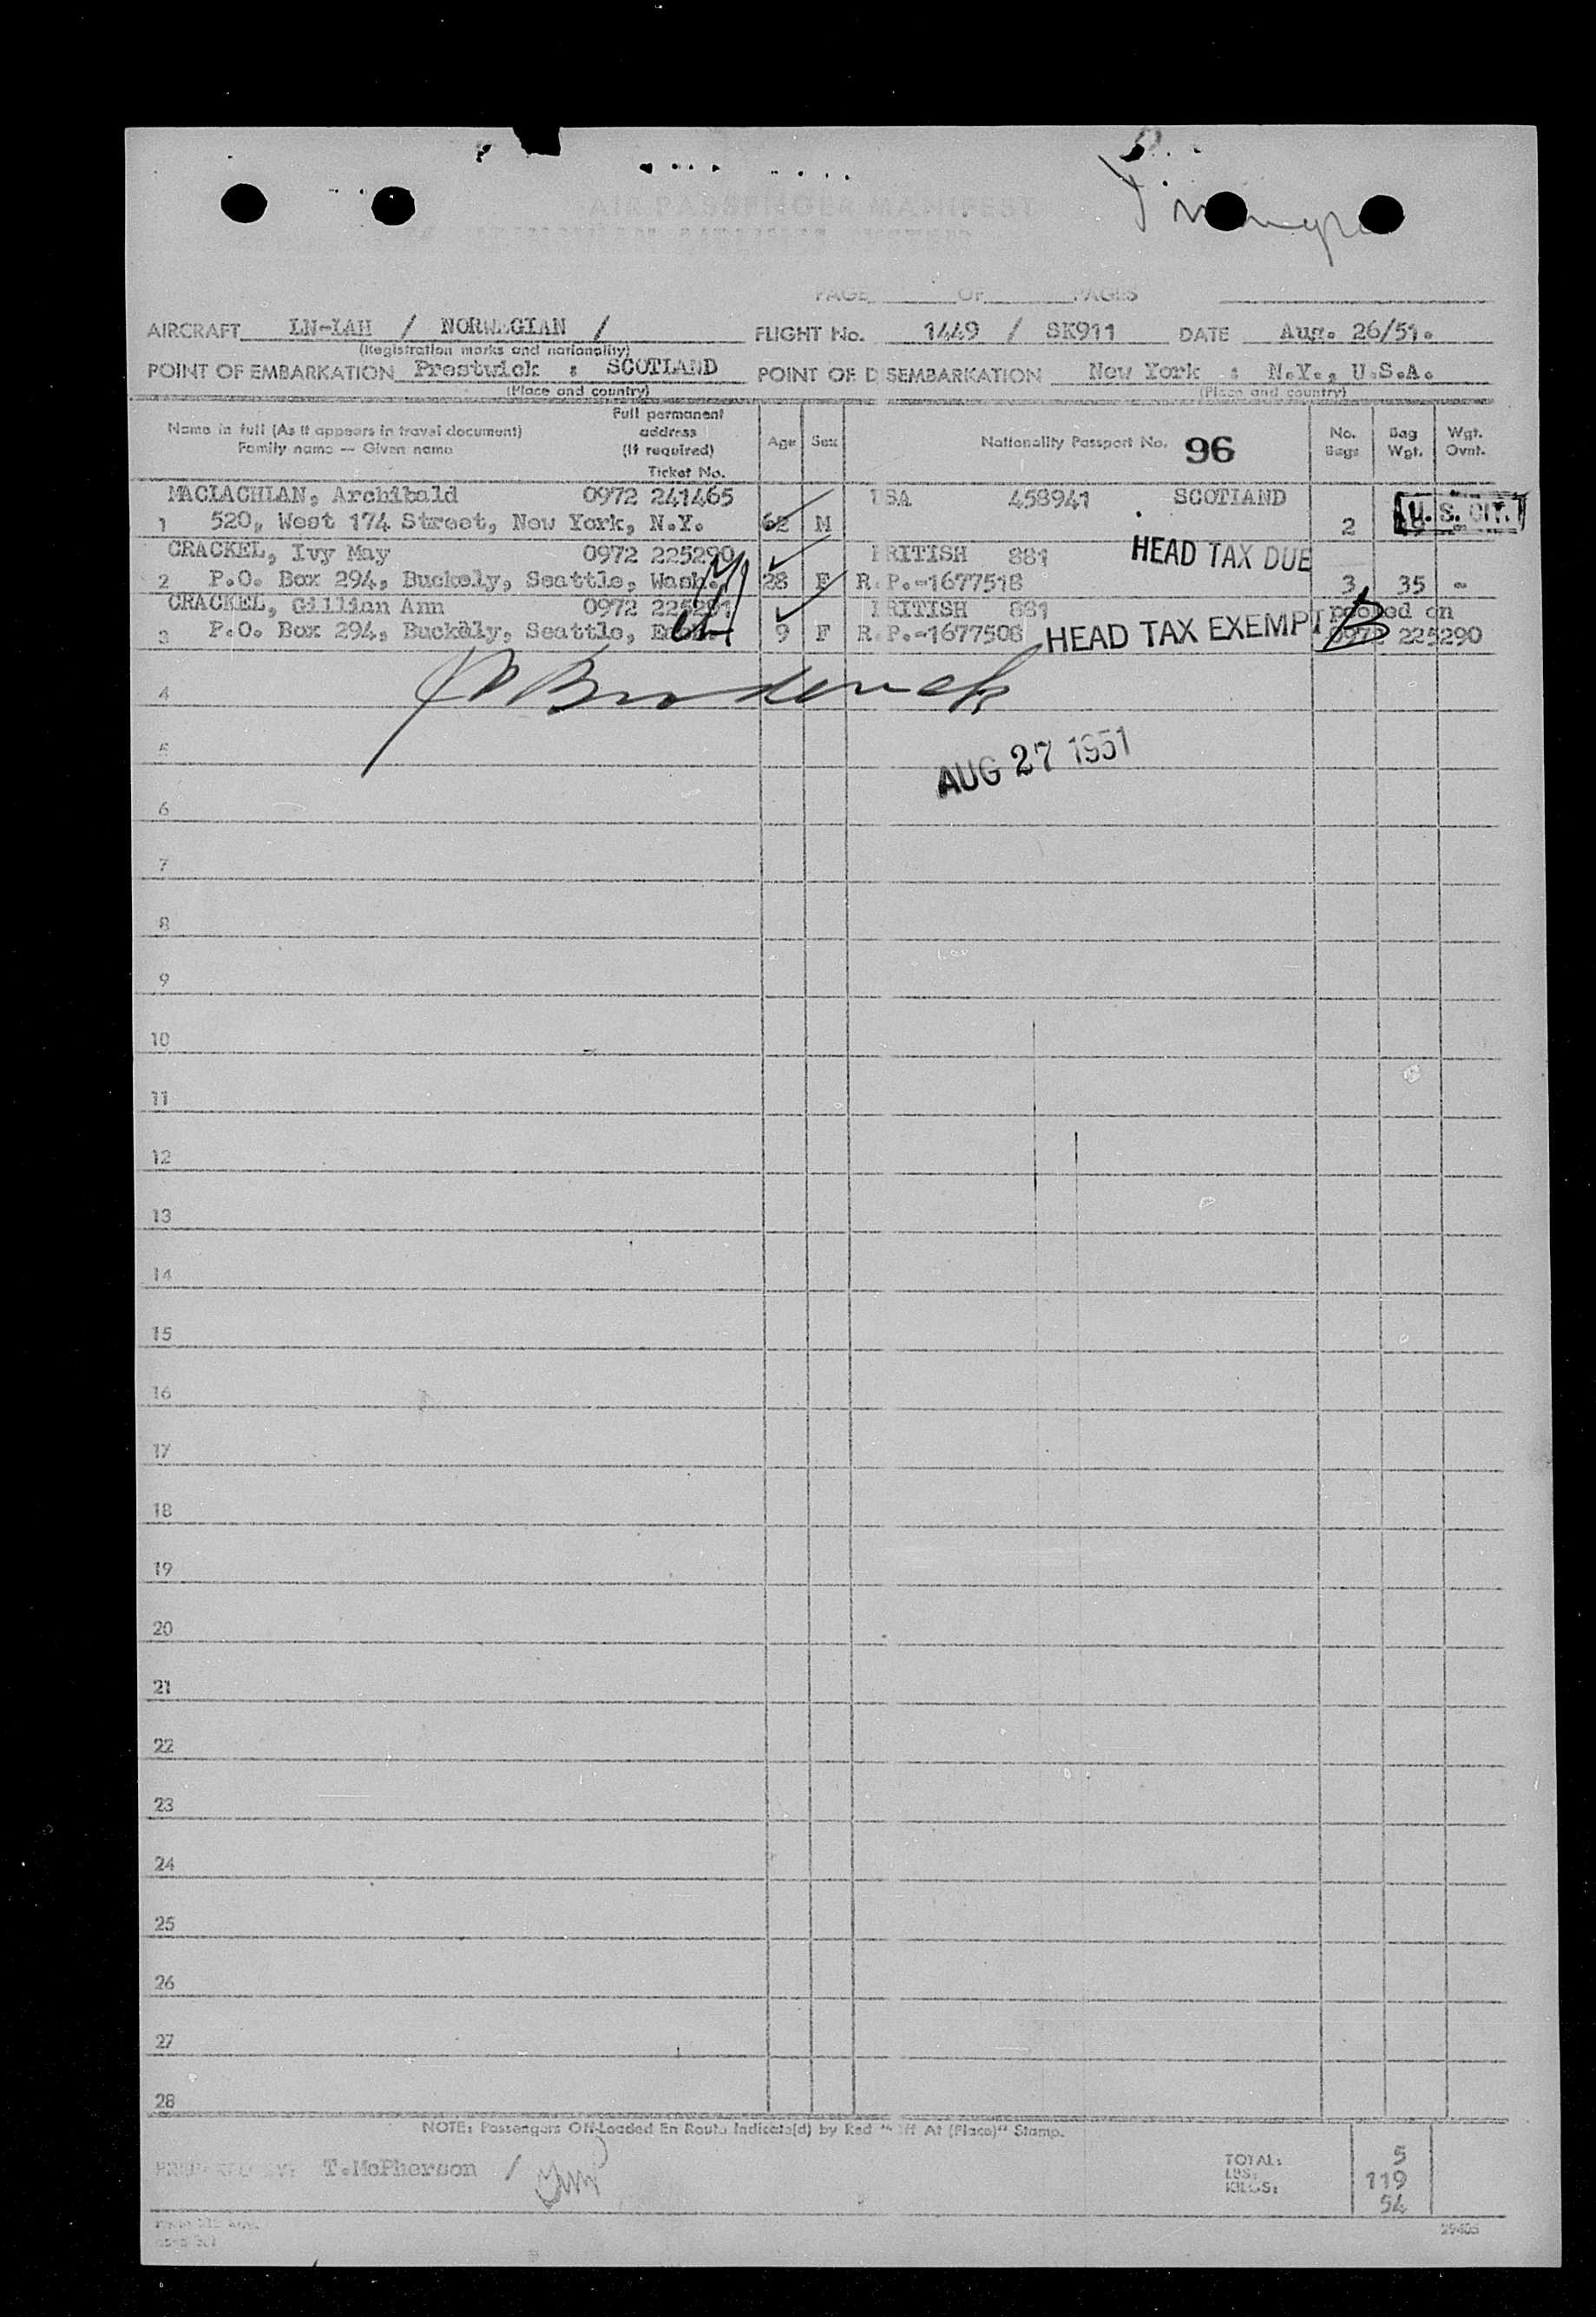 AIR PASSENGER MANIFEST
PAGE OF PAGES
AIRCRAFT LN-LAH / NORWEGIAN / FLIGHT No. 1449 / SK911 DATE Aug. 26/51.
(Registration marks and nationality)
POINT OF EMBARKATION Prestwick : SCOTLAND POINT OF DISEMBARKATION New York : N.Y., U.S.A.
(Place and country) (Place and country)
Name in full (As it appears in travel document) Family name — Given name Full permanent address (If required) Ticket No. Age Sex Nationality Passport No. 96 No. Bags Bag Wgt. Wgt. Ovnt.
MACLACHLAN, Archibald 0972 241465 USA 458941 SCOTLAND
1 520, West 174 Street, New York, N.Y. 62 M 2 U.S. CIT.
CRACKEL, Ivy May 0972 225290 BRITISH 881 HEAD TAX DUE
2 P.O. Box 294, Buckely, Seattle, Wash. 28 F R.P.-1677518 3 35 -
CRACKEL, Gillian Ann 0972 225291 BRITISH 881 pooled on
3 P.O. Box 294, Buckely, Seattle, 9 F R.P.-1677508 HEAD TAX EXEMPT B 0972 225290
4
5
AUG 27 1951
6
7
8
9
10
11
12
13
14
15
16
17
18
19
20
21
22
23
24
25
26
27
28
NOTE: Passengers Off-Loaded En Route Indicate(d) by Red "Off At (Place)" Stamp.
PREPARED BY: T.McPherson /
TOTAL: 5
LBS: 119
KILOS: 54
29405